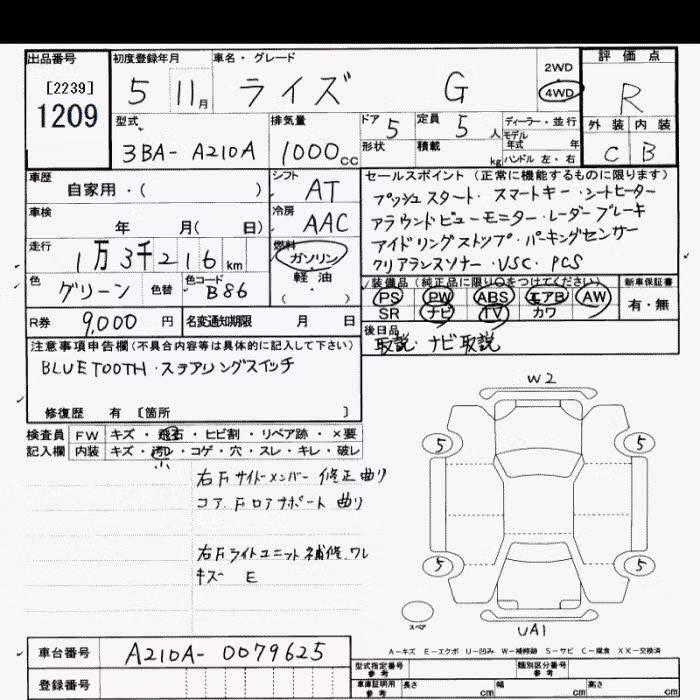 出品番号
[2239]
1209
初度登録年月
5 11月
車名・グレード
ライズ G
2WD
4WD
評価点
R
外装 内装
C B
型式
3BA-A210A
排気量
1000cc
ドア 5
定員 5人
形状
積載 kg
ディーラー・並行
モデル年式 年
ハンドル 左・右
車歴
自家用・( )
シフト
AT
車検
年 月( 日)
冷房
AAC
走行
1万3千216km
燃料
ガソリン
軽油
( )
色
グリーン
色替
色コード
B86
R券 9,000円
名変通知期限 月 日
セールスポイント (正常に機能するものに限ります)
プッシュスタート・スマートキー・シートヒーター
アラウンドビューモニター・レーダーブレーキ
アイドリングストップ・パーキングセンサー
クリアランスソナー・VSC・PCS
装備品(純正品に限り○をつけてください)
PS PW ABS エアB AW
SR ナビ TV カワ
新車保証書
有・無
後日品
取説・ナビ取説
注意事項申告欄(不具合内容等は具体的に記入して下さい)
BLUETOOTH・ステアリングスイッチ
修復歴 有 [箇所 ]
検査員記入欄
FW キズ・飛石・ヒビ割・リペア跡・×要
内装 キズ・汚レ・コゲ・穴・スレ・キレ・破レ
右Fサイドメンバー 修正曲り
コア.Fロアサポート 曲り
右Fライトユニット補修.ワレ
キズ E
W2
5 5
5 5
スペア
UA1
A-キズ E-エクボ U-凹み W-補修跡 S-サビ C-腐食 XX-交換済
車台番号
A210A-0079625
登録番号
型式指定番号 参考
類別区分番号 参考
車庫証明用 参考
長さ cm
幅 cm
高さ cm